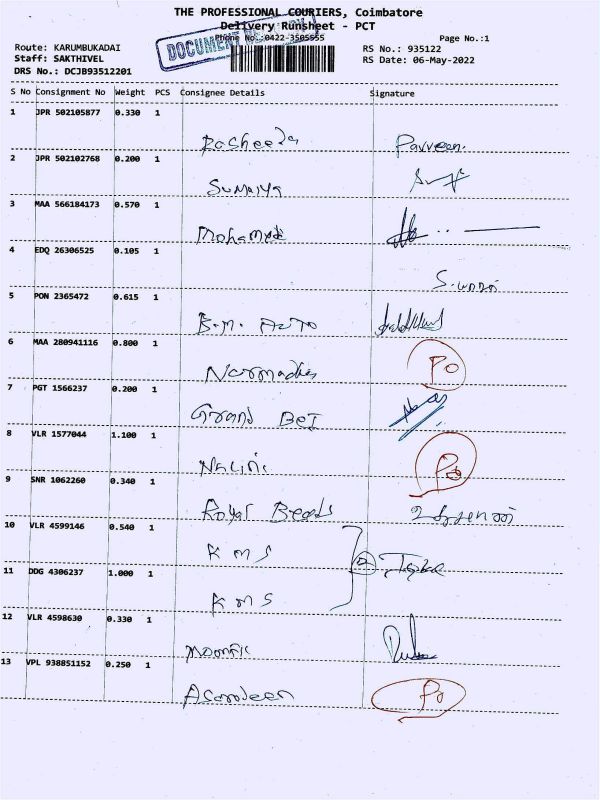 THE PROFESSIONAL COURIERS, Coimbatore
Delivery Runsheet - PCT
Phone No.:0422-3505555
Page No.:1
Route: KARUMBUKADAI
RS No.: 935122
Staff: SAKTHIVEL
RS Date: 06-May-2022
DRS No.: DCJB93512201
DOCUMENT
S No Consignment No Weight PCS Consignee Details Signature
1 JPR 502105877 0.330 1
Rasheeda Parveen.
2 JPR 502102768 0.200 1
Sumaiya
3 MAA 566184173 0.570 1
Mohamed
4 EDQ 26306525 0.105 1
5 PON 2365472 0.615 1
B.M. Auto
6 MAA 280941116 0.800 1
Narmadha Po
7 PGT 1566237 0.200 1
Grand BEI
8 VLR 1577044 1.100 1
Nalini Po
9 SNR 1062260 0.340 1
Royal Beads
10 VLR 4599146 0.540 1
KMS 2
11 DDG 4306237 1.000 1
KMS
12 VLR 4598630 0.330 1
13 VPL 938851152 0.250 1
Po